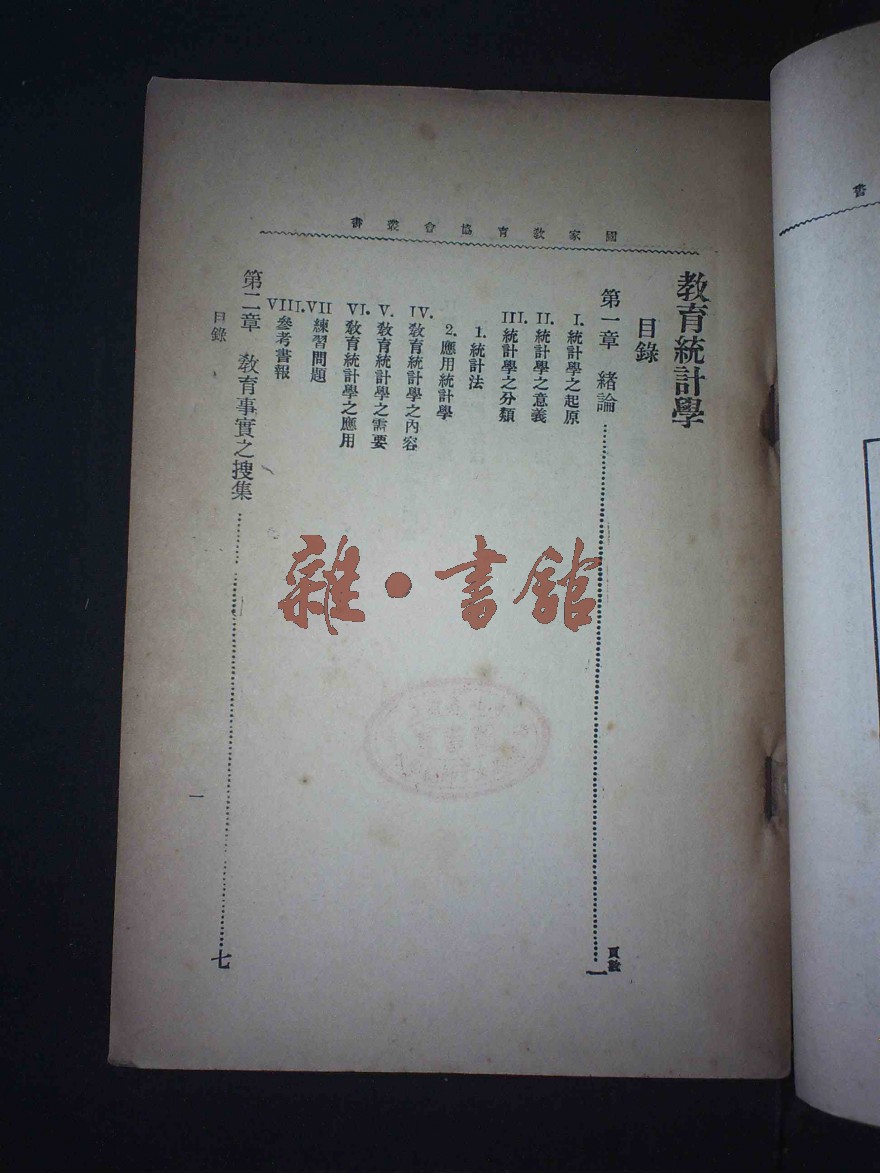 國家教育協會叢書
教育統計學
目錄
頁數
第一章 緒論 一
I. 統計學之起原
II. 統計學之意義
III. 統計學之分類
1. 統計法
2. 應用統計學
IV. 教育統計學之內容
V. 教育統計學之需要
VI. 教育統計學之應用
VII 練習問題
VIII. 參考書報
第二章 教育事實之搜集 七
目錄
一
書
雜·書館